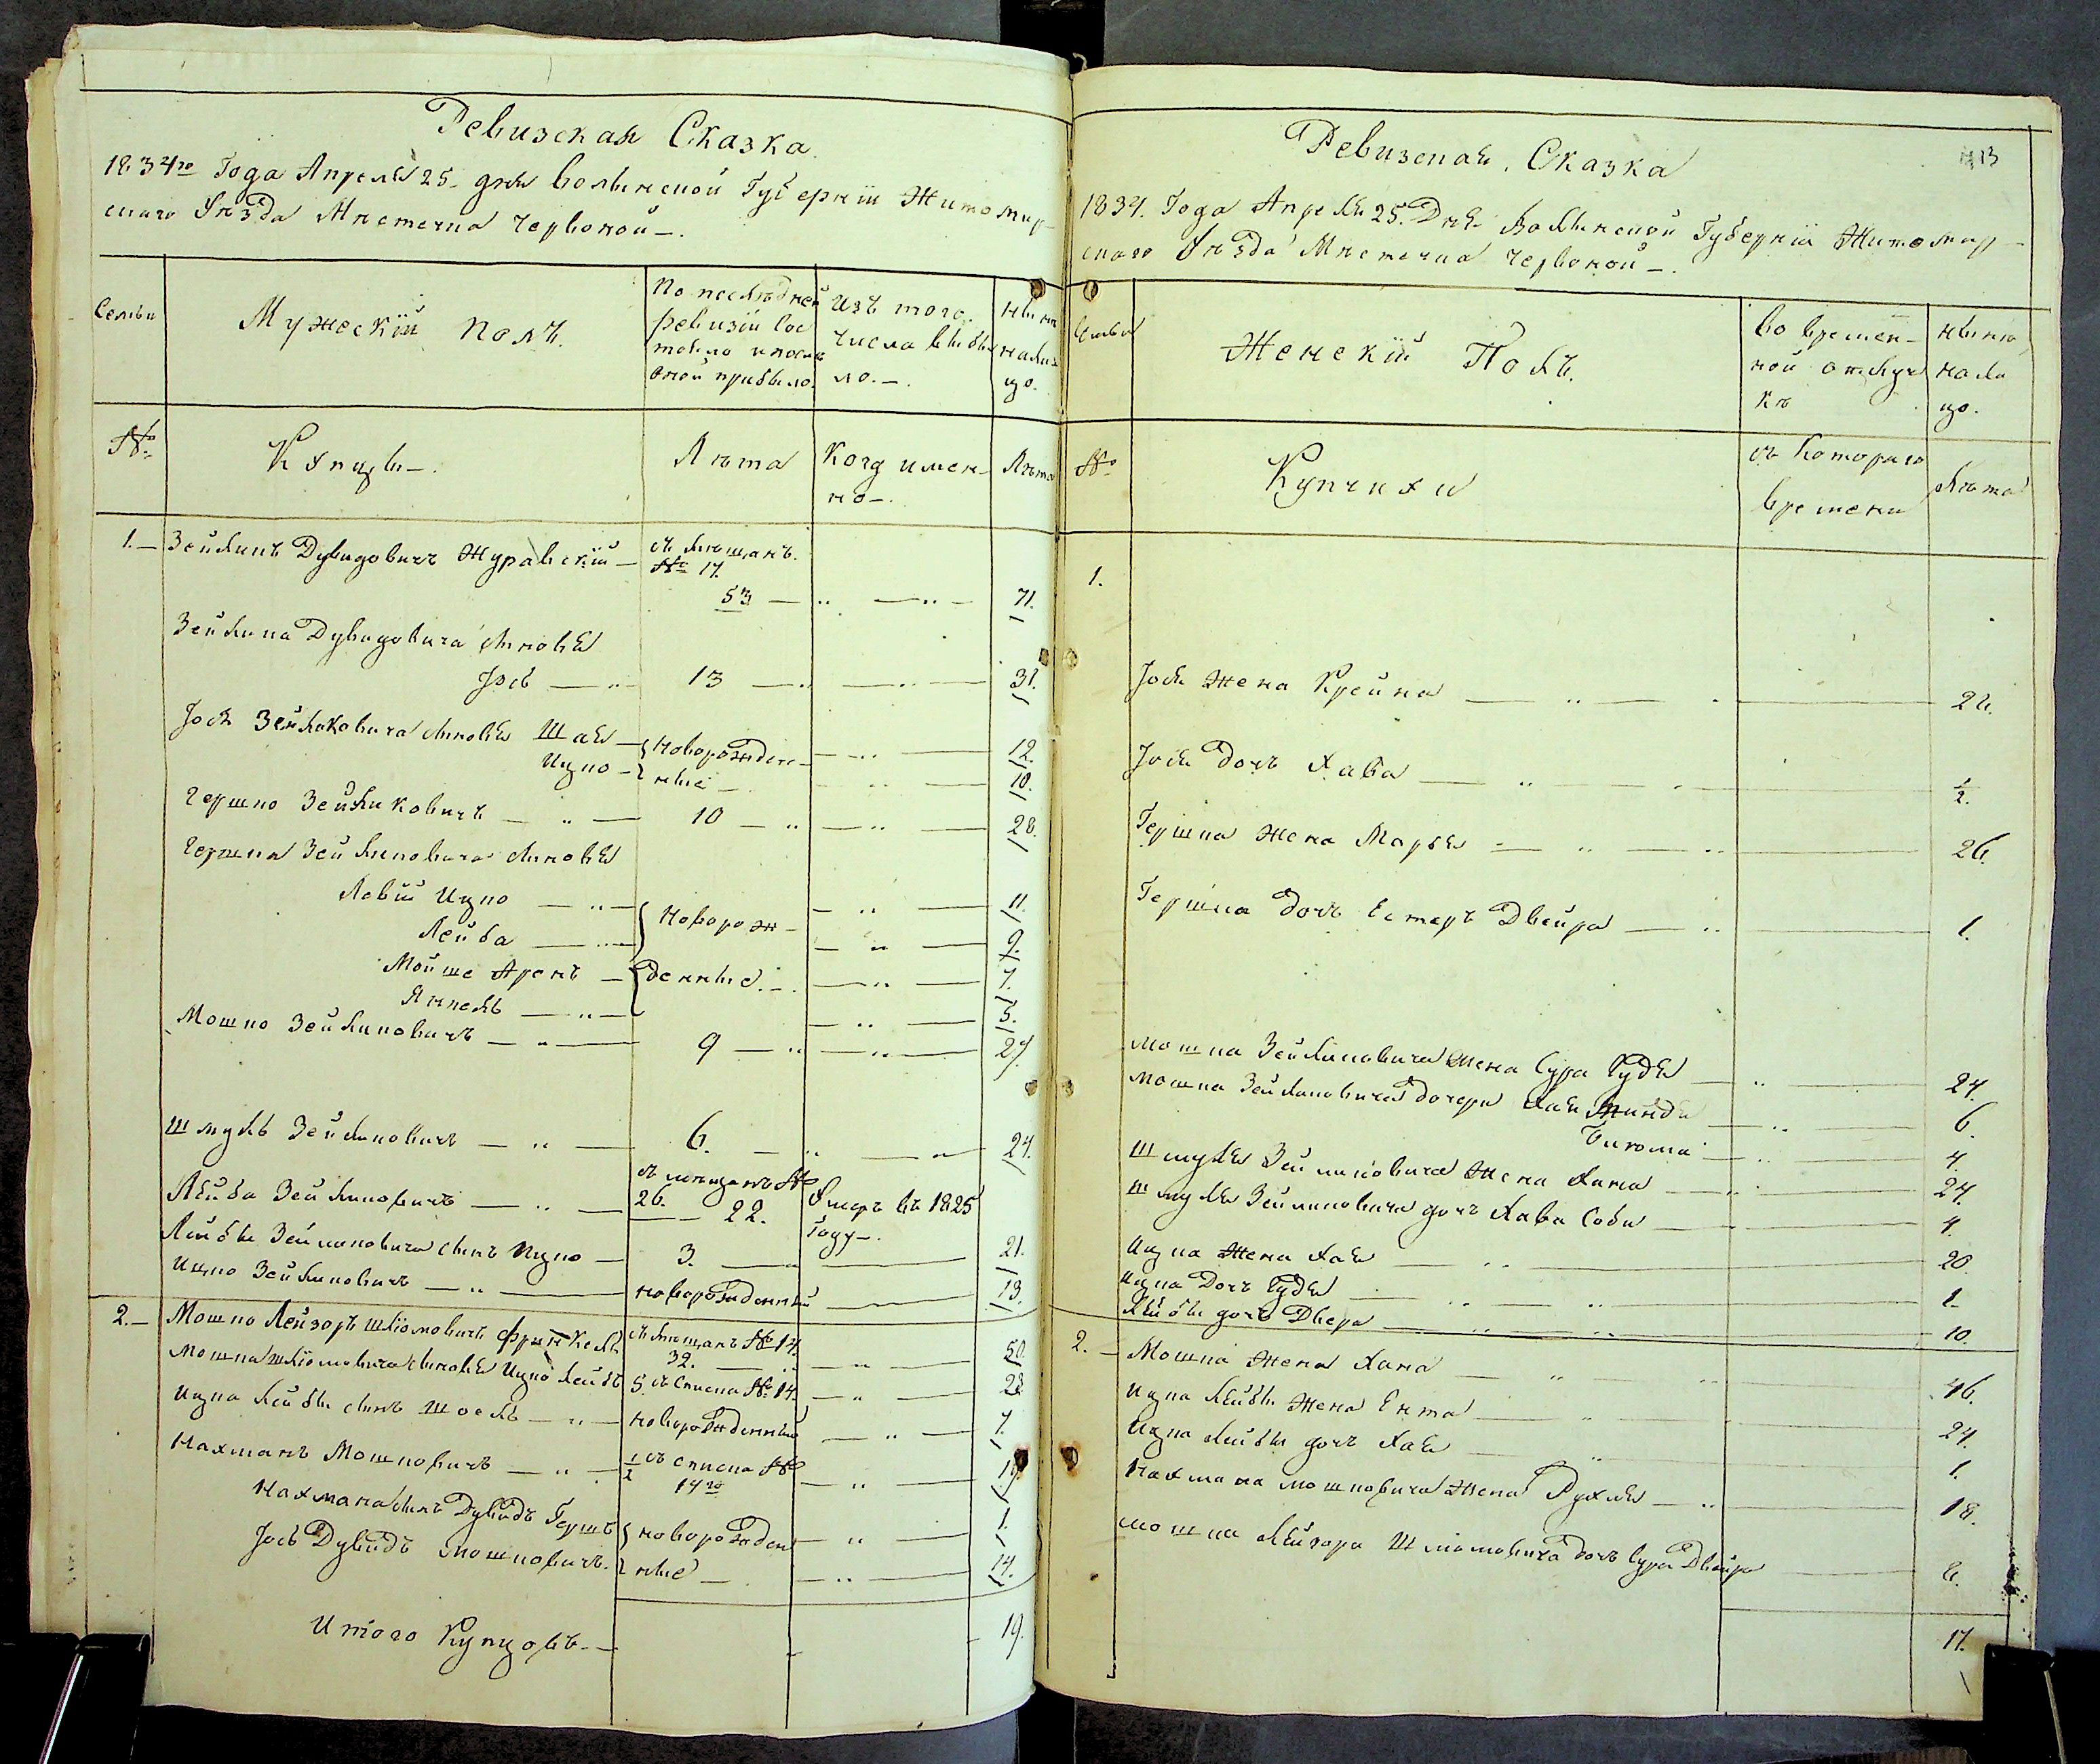 Ревизская Сказка
1834го Года Апреля 25. дня Волынской Губерніи Житомир-
скаго Уѣзда Мѣстечка Червоной —.
Семьи
Мужескій Полъ.
По последней
ревизіи сос
тояло и после
оной прибыло.
Изъ того.
числа выбы
ло. —.
Ныне
нали-
цо.
№
Купцы —.
Лѣта
Когд имен-
но —.
Лѣта
1. — Зейликъ Дувидовичъ Журавскій — съ мѣщанъ.
№ 17.
53 — „ — „ — 71.
Зейлика Дувидовича сыновья
Іось — „ 13 — „ — „ — 31.
Іося Зейликовича сыновья Шая — Новорожден- — „ — 12.
Ицко — ные — „ — 10.
Гершко Зейликовичъ — „ — 10 — „ — „ — 28.
Гершка Зейликовича сыновья
Левій Ицко — „ — — „ — 11.
Лейба — „ — Новорож- — „ — 9.
Мойше Аронъ — денные. — — „ — 7.
Янкель — „ — — „ — 5.
Мошко Зейликовичъ — „ — 9 — „ — „ — 27.
Шмуль Зейликовичъ — „ — 6. — „ — „ — 24.
съ мещанъ №
Лейба Зейликовичъ — „ — 26. — 22. Умеръ въ 1825
году —.
Лейбы Зейликовича сынъ Ицко — 3. — „ — 21.
Ицко Зейликовичъ — „ — новорожденный — 13.
2. — Мошко Лейзоръ Шліомовичъ Френкель съ мещанъ № 14.
32. — „ — „ — 50.
Мошка Шліомовича сыновья Ицко Лейбъ 5. съ списка № 14. — „ — 23
Ицка Лейбы сынъ Шоель — „ — новорожденный — „ — 7.
Нахманъ Мошковичъ — „ — 1/2 съ списка №
14го — „ — 19.
Нахмана сынъ Дувидъ Гершъ новорожден — „ — 1.
Іось Дувидъ Мошковичъ. ные — — „ — 14.
Итого Купцовъ. — 19.
Ревизская. Сказка
13
1834. Года Апреля 25. Дня Волынской Губерніи Житомир-
скаго Уѣзда Мѣстечка Червоной —.
Семьи
Женскій Полъ.
во времен-
ной отлуч
кѣ
ныне
нали
цо.
№
Купчихи
съ котораго
времени
Лѣта
1.
Іося жена Крейна — „ — 28.
Іося дочь Хава — „ — 1/2.
Гершка жена Марья — „ — „ — 26.
Гершка дочь Естеръ Двейра — „ — 1.
Мошка Зейликовича жена Сура Гудя — „ — 24.
Мошка Зейликовича дочери Хая Миндя — „ — 6.
— „ — 4.
Шмуля Зейликовича жена Хана — „ — 24.
Шмуля Зейликовича дочь Хава Собя — 4.
Ицка жена Хая — „ — 20
Ицка дочь Гудя — „ — „ — 1
Лейбы дочь Двера — „ — „ — 10.
2. — Мошка жена Хана — „ — „ — 46.
Ицка Лейбы жена Ента — „ — 24.
Ицка Лейбы дочь Хая — „ — 1.
Нахмана Мошковича жена Рухля — „ — 18.
Мошка Лейзора Шліомовича дочь Сура Двейра — 8.
17.